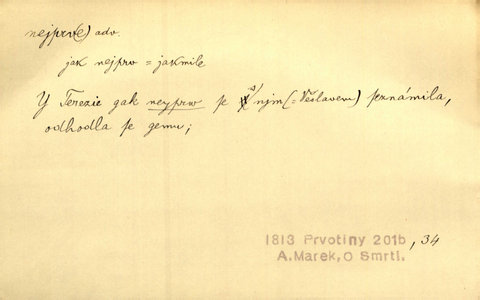 nejprv(e) adv.
jak nejprv = jakmile
Y Terezie gak neyprw se s njm (= Věslavem) seznámila,
odhodla se gemu;
1813 Prvotiny 201b, 34
A. Marek, O Smrti.